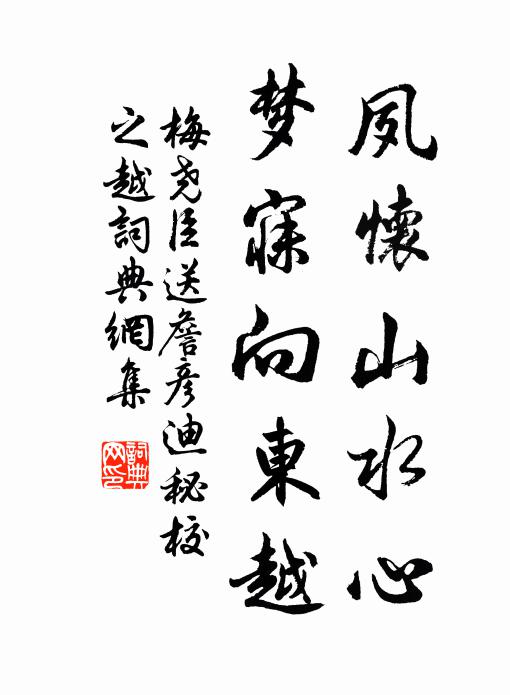 夙懷山水心
梦寐向東越
梅堯臣送詹彦迪秘校
之越詞典網集
詞典
网印